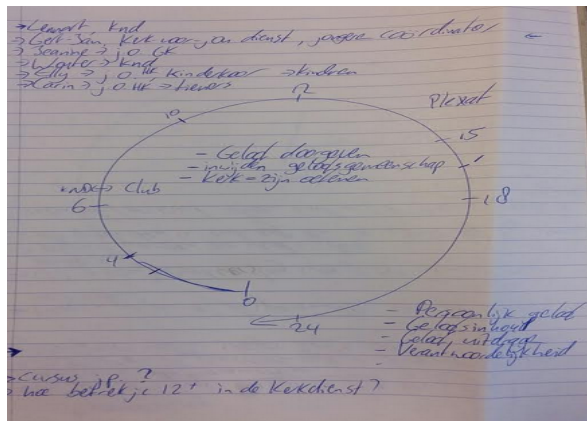 → Lennart knd
→ Gert-Jan, KvK voor-jon dienst, jongere coördinator ←
→ Jeanne → j.o. GK
→ Wouter → knd
→ Elly → j.o. HK Kinderkoor → kinderen
→ Carin → j.o. HK → tieners
12
10
Plexat
15
- Geloof doorgeven
- inwijden geloofsgemeenschap
- Kerk = zijn beleven
KND → Club
6
18
4
0
24
- Persoonlijk geloof
- Geloofsinhoud
- Geloof uitdragen
- Verantwoordelijkheid
-
→ Cursus j.p. ?
→ hoe betrek je 12+ in de kerkdienst?